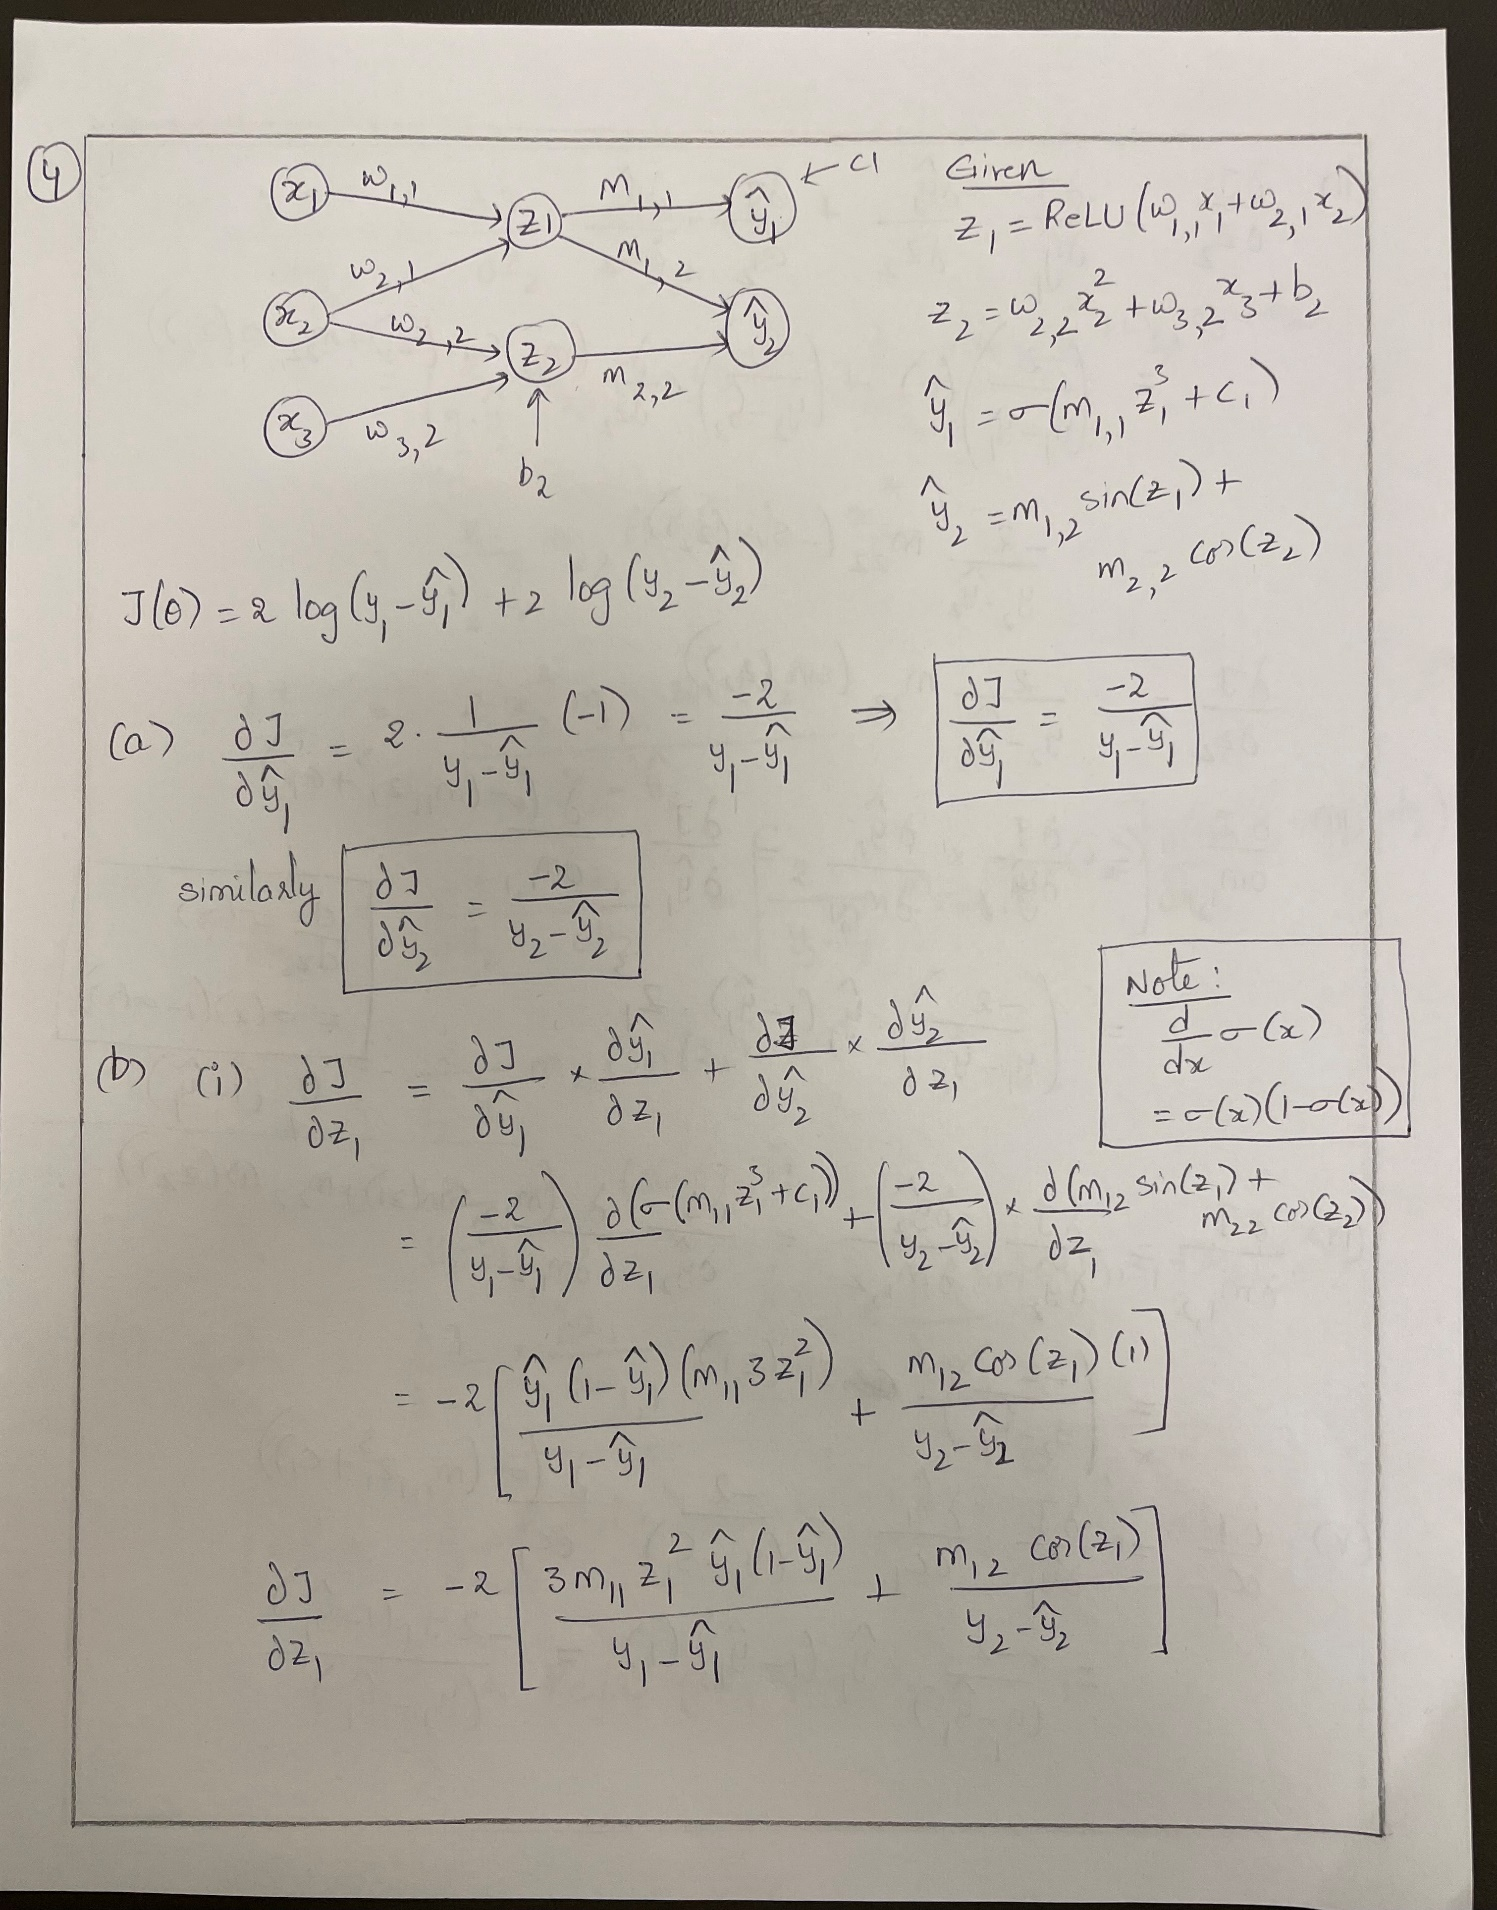 ④
x₁ w₁,₁ z₁ m₁,₁ ŷ₁ ← c1
w₂,₁ m₁,₂
x₂ w₂,₂ z₂ m₂,₂ ŷ₂
x₃ w₃,₂
b₂
Given
z₁ = ReLU(w₁,₁x₁ + w₂,₁x₂)
z₂ = w₂,₂x₂² + w₃,₂x₃ + b₂
ŷ₁ = σ(m₁,₁z₁³ + c₁)
ŷ₂ = m₁,₂ sin(z₁) +
m₂,₂ cos(z₂)
J(θ) = 2 log(y₁ - ŷ₁) + 2 log(y₂ - ŷ₂)
(a) ∂J/∂ŷ₁ = 2 · 1/(y₁ - ŷ₁) (-1) = -2/(y₁ - ŷ₁) ⇒ ∂J/∂ŷ₁ = -2/(y₁ - ŷ₁)
similarly ∂J/∂ŷ₂ = -2/(y₂ - ŷ₂)
Note:
d/dx σ(x)
= σ(x)(1-σ(x))
(b) (i) ∂J/∂z₁ = ∂J/∂ŷ₁ × ∂ŷ₁/∂z₁ + ∂J/∂ŷ₂ × ∂ŷ₂/∂z₁
= (-2/(y₁ - ŷ₁)) ∂(σ(m₁₁z₁³ + c₁))/∂z₁ + (-2/(y₂ - ŷ₂)) × ∂(m₁₂ sin(z₁) + m₂₂ cos(z₂))/∂z₁
= -2 [ŷ₁(1 - ŷ₁)(m₁₁3z₁²)/(y₁ - ŷ₁) + m₁₂ cos(z₁)(1)/(y₂ - ŷ₂)]
∂J/∂z₁ = -2 [3m₁₁z₁² ŷ₁(1-ŷ₁)/(y₁ - ŷ₁) + m₁₂ cos(z₁)/(y₂ - ŷ₂)]